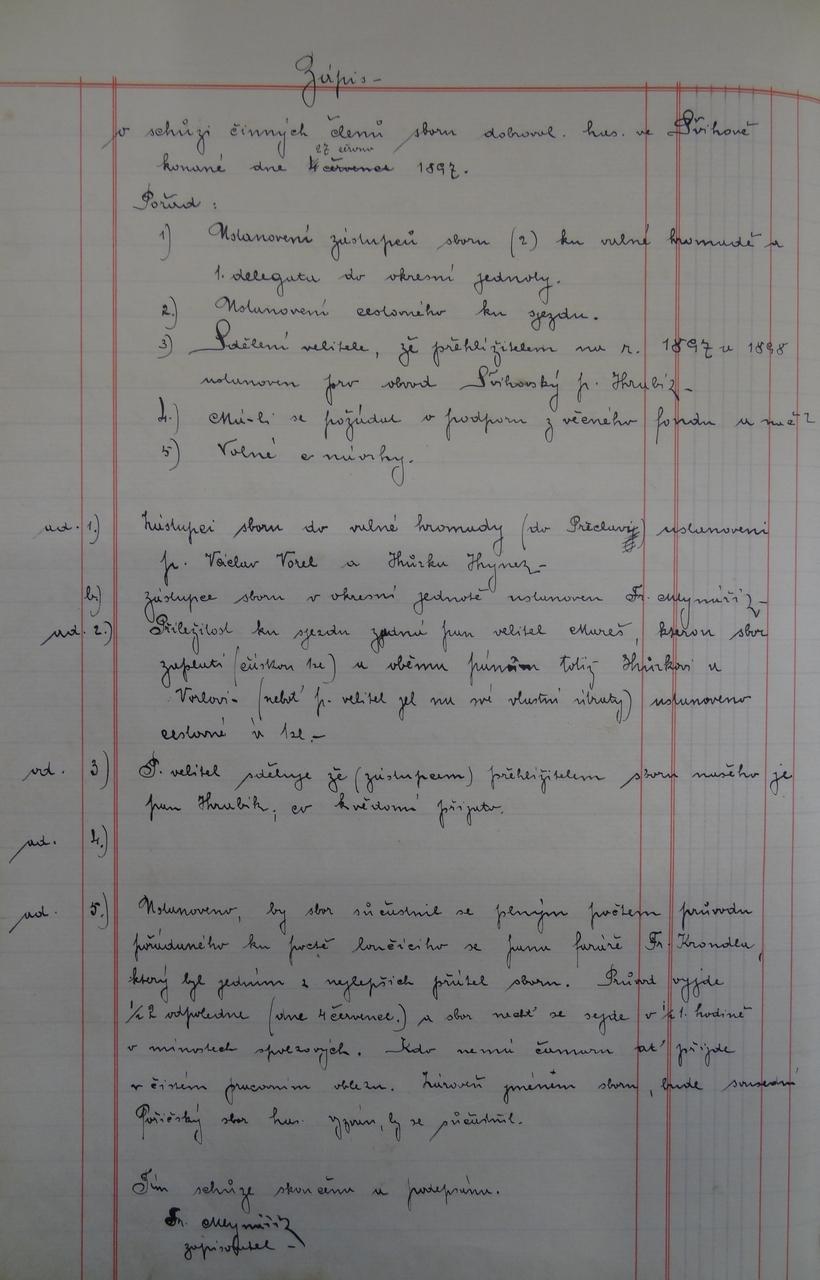 Zápis –
o schůzi činných členů sboru dobrovol. has. ve Přihově
27 června
konané dne 4 července 1897.
Pořad :
1) Ustanovení zástupců sboru (2) ku valné hromadě a
1. delegata do okresní jednoty.
2.) Ustanovení cestovného ku sjezdu.
3) Sdělení velitele, že přehlížitelem na r. 1897 a 1898
ustanoven pro obvod p. Hrubíz –
4.) Má-li se požádat o podporu z věčného fondu a nač?
5) Volné návrhy.
ad. 1.) Zástupci sboru do valné hromady (do ) ustanoveni
p. Václav Vorel a Hůrka Hynek –
b) zástupce sboru v okresní jednotě ustanoven Fr. Mlynáříz –
ad. 2.) Příležitost ku sjezdu zjedná pan velitel Mareš, kterou sbor
zaplatí (částkou 1zl) a oběma pánům totiž Hůrkovi a
Vorlovi – (neboť p. velitel jel na své vlastní útraty) ustanoveno
cestovné à 1zl. –
ad. 3) P. velitel sděluje že (zástupcem) přehlížitelem sboru našeho je
pan Hrubík; co k vědomí přijato.
ad. 4.)
ad. 5.) Ustanoveno, by sbor súčastnil se plným počtem průvodu
pořádaného ku poctě loučícího se pana faráře Fr. Krondla,
který byl jedním z nejlepších přátel sboru. Průvod vyjde
½ 2 odpoledne (dne 4 července.) a sbor nechť se sejde v ½ 1. hodině
v místnostech spolkových. Kdo nemá čamaru ať přijde
v čistém pracovním obleku. Zároveň jménem sboru, bude sousední
Poříčský sbor has. vyzván, by se súčastnil.
Tím schůze skončena a podepsána.
Fr. Mlynáříz
zapisovatel –